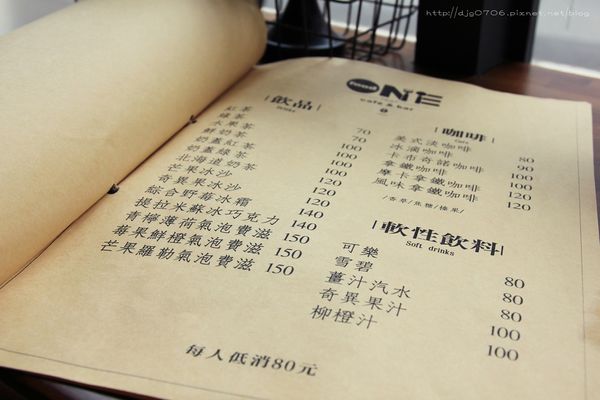 http://djg0706.pixnet.net/blog
ONE
cafe & bar
飲品
紅茶
綠茶 70
水果茶 70
鮮奶茶 100
奶蓋紅茶 100
奶蓋綠茶 100
北海道奶茶 120
芒果冰沙 120
奇異果冰沙 120
綜合野莓冰霜 120
提拉米蘇冰巧克力 140
青檸薄荷氣泡費滋 150
莓果鮮橙氣泡費滋 150
芒果羅勒氣泡費滋 150
咖啡
美式淡咖啡 80
冰滴咖啡 90
卡布奇諾咖啡 100
拿鐵咖啡 100
摩卡拿鐵咖啡 120
風味拿鐵咖啡 120
/香草/焦糖/榛果/
軟性飲料
Soft drinks
可樂 80
雪碧 80
薑汁汽水 80
奇異果汁 100
柳橙汁 100
每人低消80元